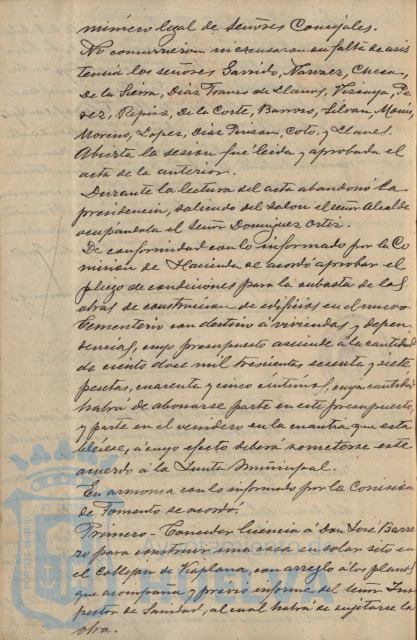 número legal de Señores Concejales.
No concurrieron ni excusaron su falta de asis
tencia los señores Garrido, Narvaez, Checa,
De la Sierra, Diaz Franco de Llanos, Vizcaya, Pe
rez, De la Corte, Barroso, Silvan
Moreno, Lopez, Diaz Coto, y Llanes.
Abierta la sesion fué leida y aprobada el
acta de la anterior.
Durante la lectura del acta abandonó la
presidencia, saliendo del salon el señor Alcalde
ocupandola el Señor Dominguez Ortiz.
De conformidad con lo informado por la Co
misión de Hacienda se acordó aprobar el
pliego de condiciones para la subasta de las
obras de construcion de edificios en el nuevo
Cementerio con destino á viviendas y depen
dencias, cuyo presupuesto asciende á la cantidad
de ciento doce mil trescientas sesenta y siete
pesetas, cuarenta y cinco centimos, cuya cantidad
habrá de abonarse parte en este presupuesto
y parte en el venidero en la cuantia que esta
blece, á cuyo efecto deberá someterse este
acuerdo á la Junta Municipal.
En armonia con lo informado por la Comision
de Fomento se acordó.
Primero- Conceder licencia á Don José Barre
ro para construir una casa en solar sito en
el Callejon de con arreglo á los planos
que acompaña y previo informe del señor Ins
pector de Sanidad, al cual habrá de sujetarse la
obra.
Ayuntamiento de
HUELVA
PORTUS MARIS
ET TERRÆ